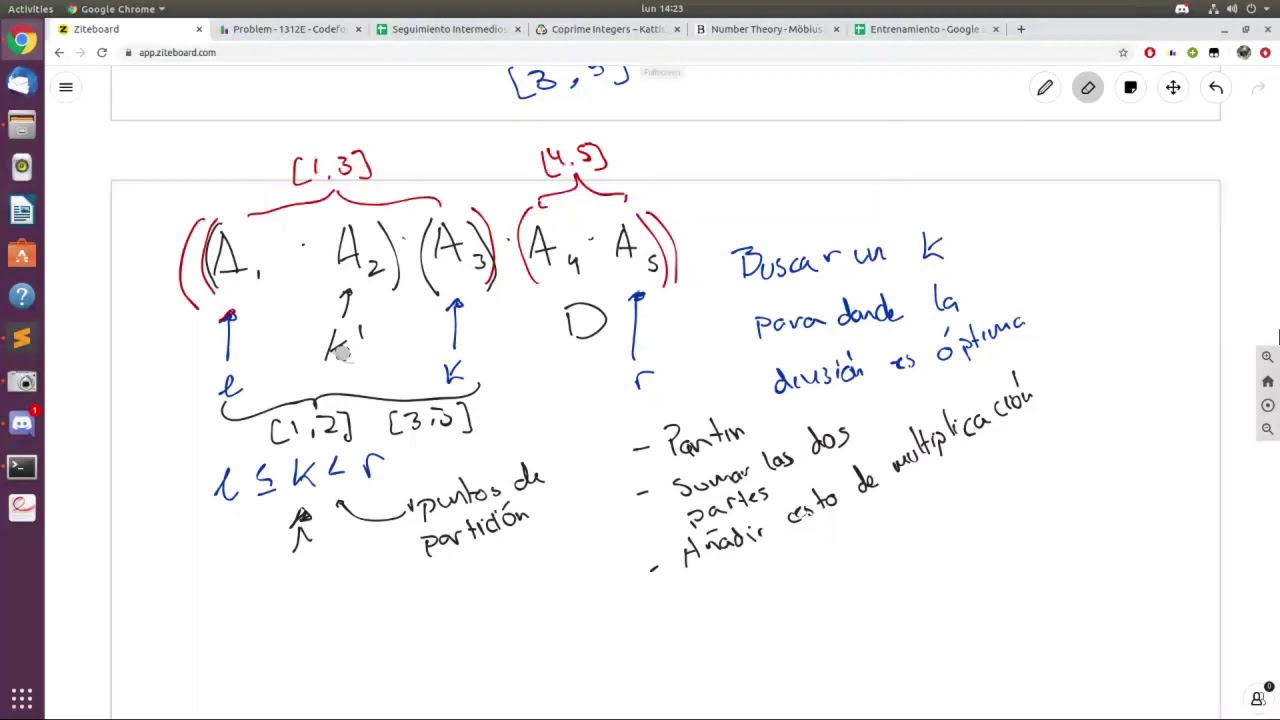 Activities
Google Chrome
lun 14:23
Ziteboard
Problem - 1312E - Codefo
Seguimiento Intermedios
Coprime Integers – Kattis
Number Theory - Möbius
Entrenamiento - Google
app.ziteboard.com
Fullscreen
[3, 5]
[1,3] [4,5]
((A1 · A2) · (A3)) · (A4 · A5))
k' D
l k r
[1,2] [3,3]
l ≤ k < r
puntos de
partición
Buscar un k
para donde la
división es óptima
- Partir
- Sumar las dos
partes
- Añadir costo de multiplicación
1
0